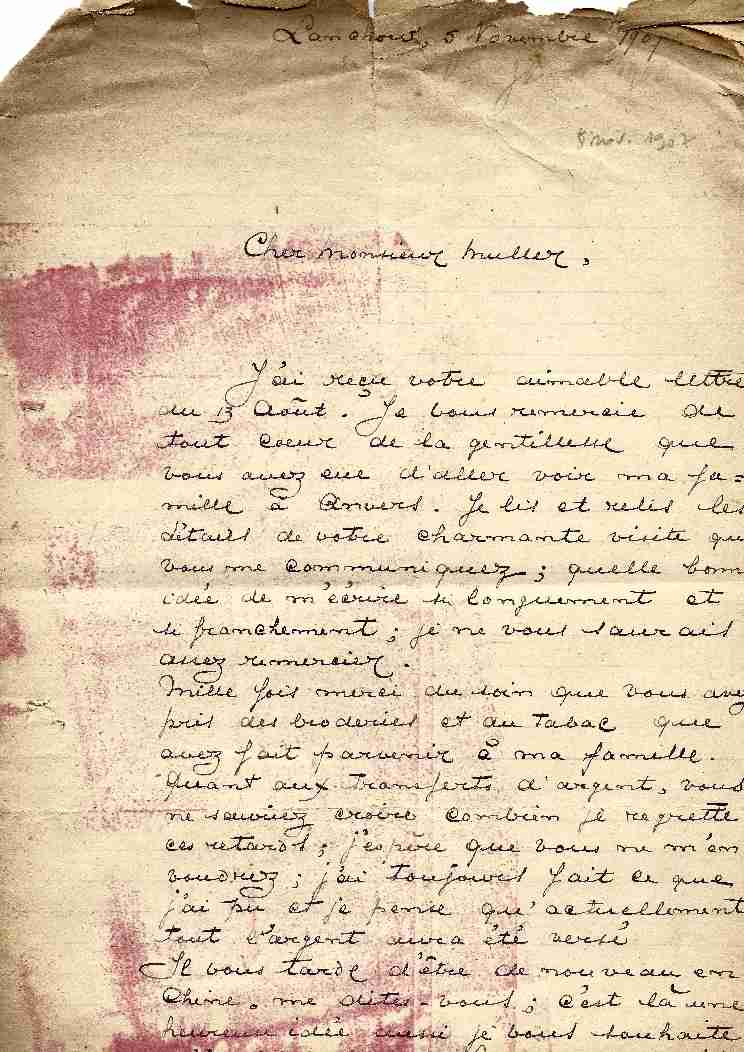 Lanchow, 5 Novembre 1907
5 nov. 1907
Cher monsieur Muller,
J'ai reçu votre aimable lettre
du 13 Août. Je vous remercie de
tout coeur de la gentillesse que
vous avez eue d'aller voir ma fa=
mille à Anvers. Je lis et relis les
détails de votre charmante visite que
vous me communiquez; quelle bonne
idée de m'écrire si longuement et
si franchement; je ne vous saurais
assez remercier.
Mille fois merci du soin que vous avez
pris des broderies et du tabac que
avez fait parvenir à ma famille.
Quant aux transferts d'argent, vous
ne sauriez croire combien je regrette
ces retards; j'espère que vous ne m'en
voudrez; j'ai toujours fait ce que
j'ai pu et je pense qu'actuellement
tout l'argent aura été versé
Il vous tarde d'être de nouveau en
Chine, me dites-vous; c'est là une
heureuse idée aussi je vous souhaite